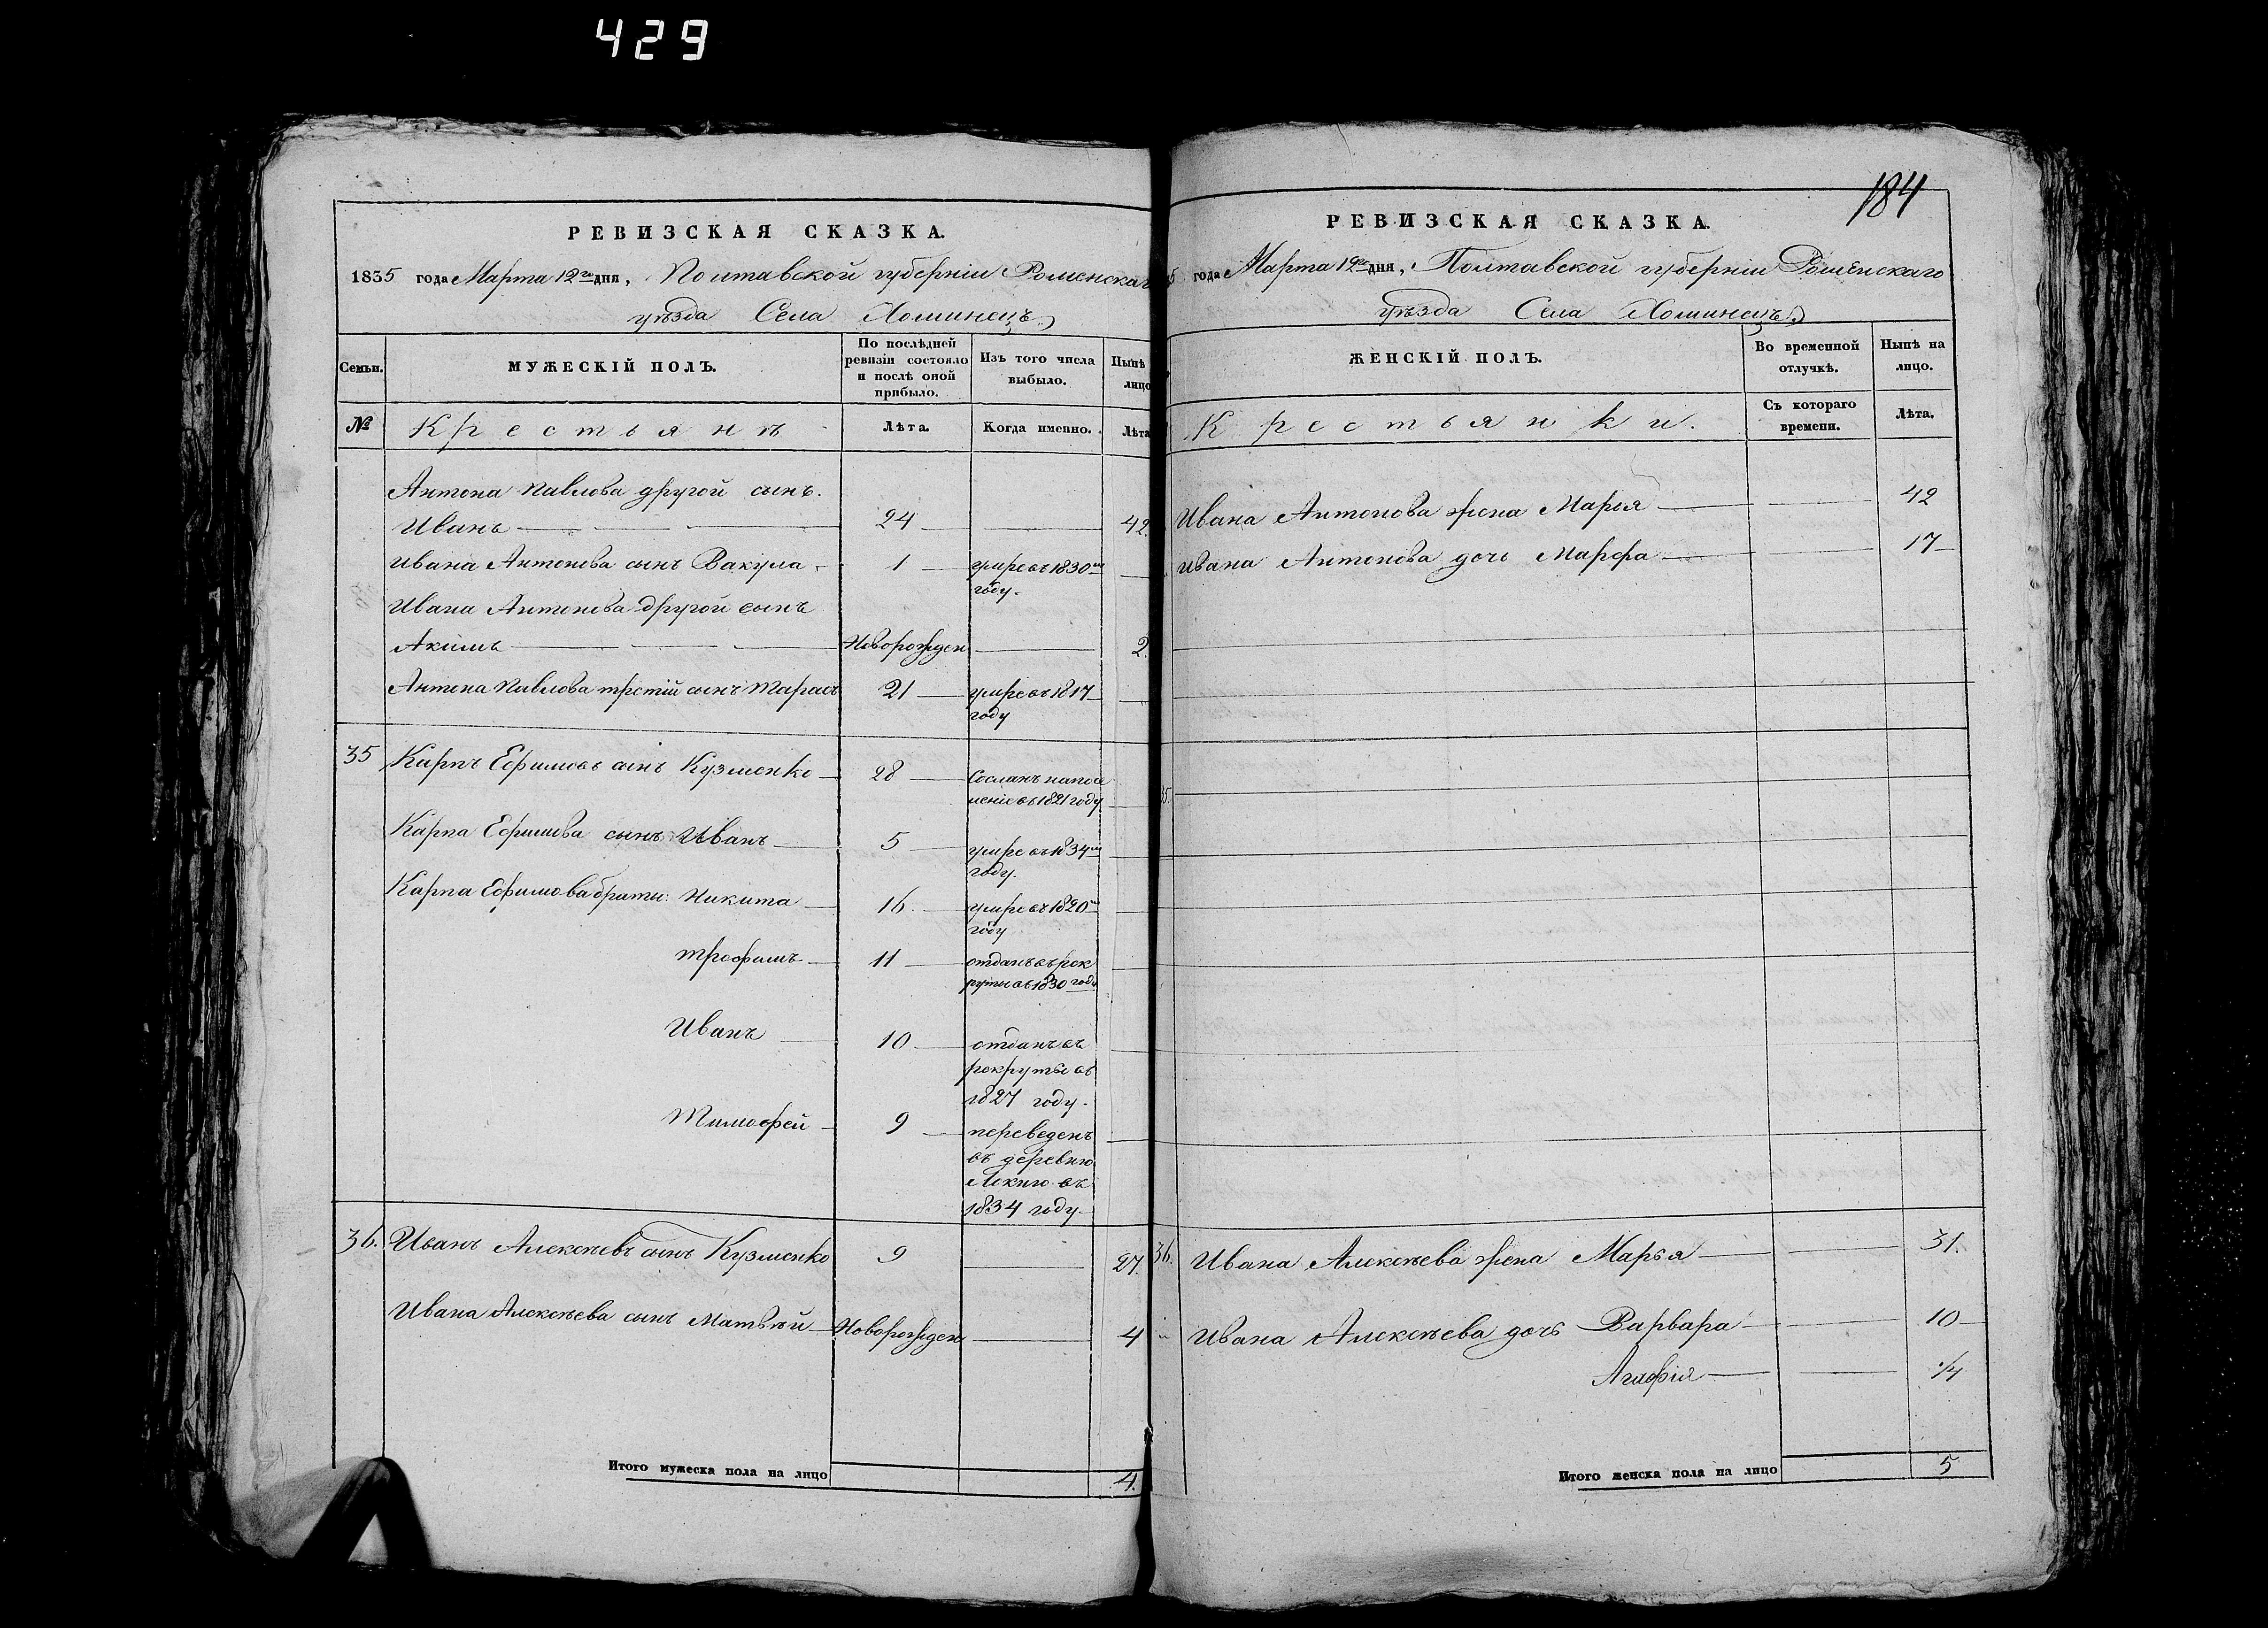 429
184
РЕВИЗСКАЯ СКАЗКА.
1835 года Марта 12го дня, Полтавской губерніи Роменскаг
уѣзда Села Хоминецъ
Семьи.
МУЖЕСКІЙ ПОЛЪ.
По послѣдней
ревизіи состояло
и послѣ оной
прибыло.
Изъ того числа
выбыло.
Нынѣ
лицо
№
Крестьянъ
Лѣта.
Когда именно.
Лѣта
Антона Павлова другой сынъ.
Иванъ 24 42.
Ивана Антонова сынъ Вакула 1 умре въ 1830м
году.
Ивана Антонова другой сынъ
Акимъ Новорожден 2.
Антона Павлова третій сынъ Тарасъ 21 умре въ 1817
году
35 Карпъ Ефимовъ сынъ Кузменко 28 Сосланъ на посе
леніе въ 1821 году
Карпа Ефимова сынъ Иванъ 5 умре въ 1834м
году.
Карпа Ефимова браты: Никита 16. умре въ 1820м
году
Трофимъ 11 отданъ въ рек
руты въ 1830 году
Иванъ 10 отданъ въ
рекруты въ
1827 году.
Тимофей 9 переведенъ
въ деревню
въ
1834 году.
36. Иванъ Алексѣевъ сынъ Кузменко 9 27.
Ивана Алексѣева сынъ Матвѣй Новорожден 4
Итого мужеска пола на лицо 4.
РЕВИЗСКАЯ СКАЗКА.
5 года Марта 12го дня, Полтавской губерніи Роменскаго
уѣзда Села Хоминецъ
ЖЕНСКІЙ ПОЛЪ.
Во временной
отлучкѣ.
Нынѣ на
лицо.
Крестьянки.
Съ котораго
времени.
Лѣта.
Ивана Антонова жена Марья 42
Ивана Антонова дочь Марфа 17
35.
36. Ивана Алексѣева жена Марья 31.
Ивана Алексѣева дочь Варвара 10
Агафія 1/4
Итого женска пола на лицо 5